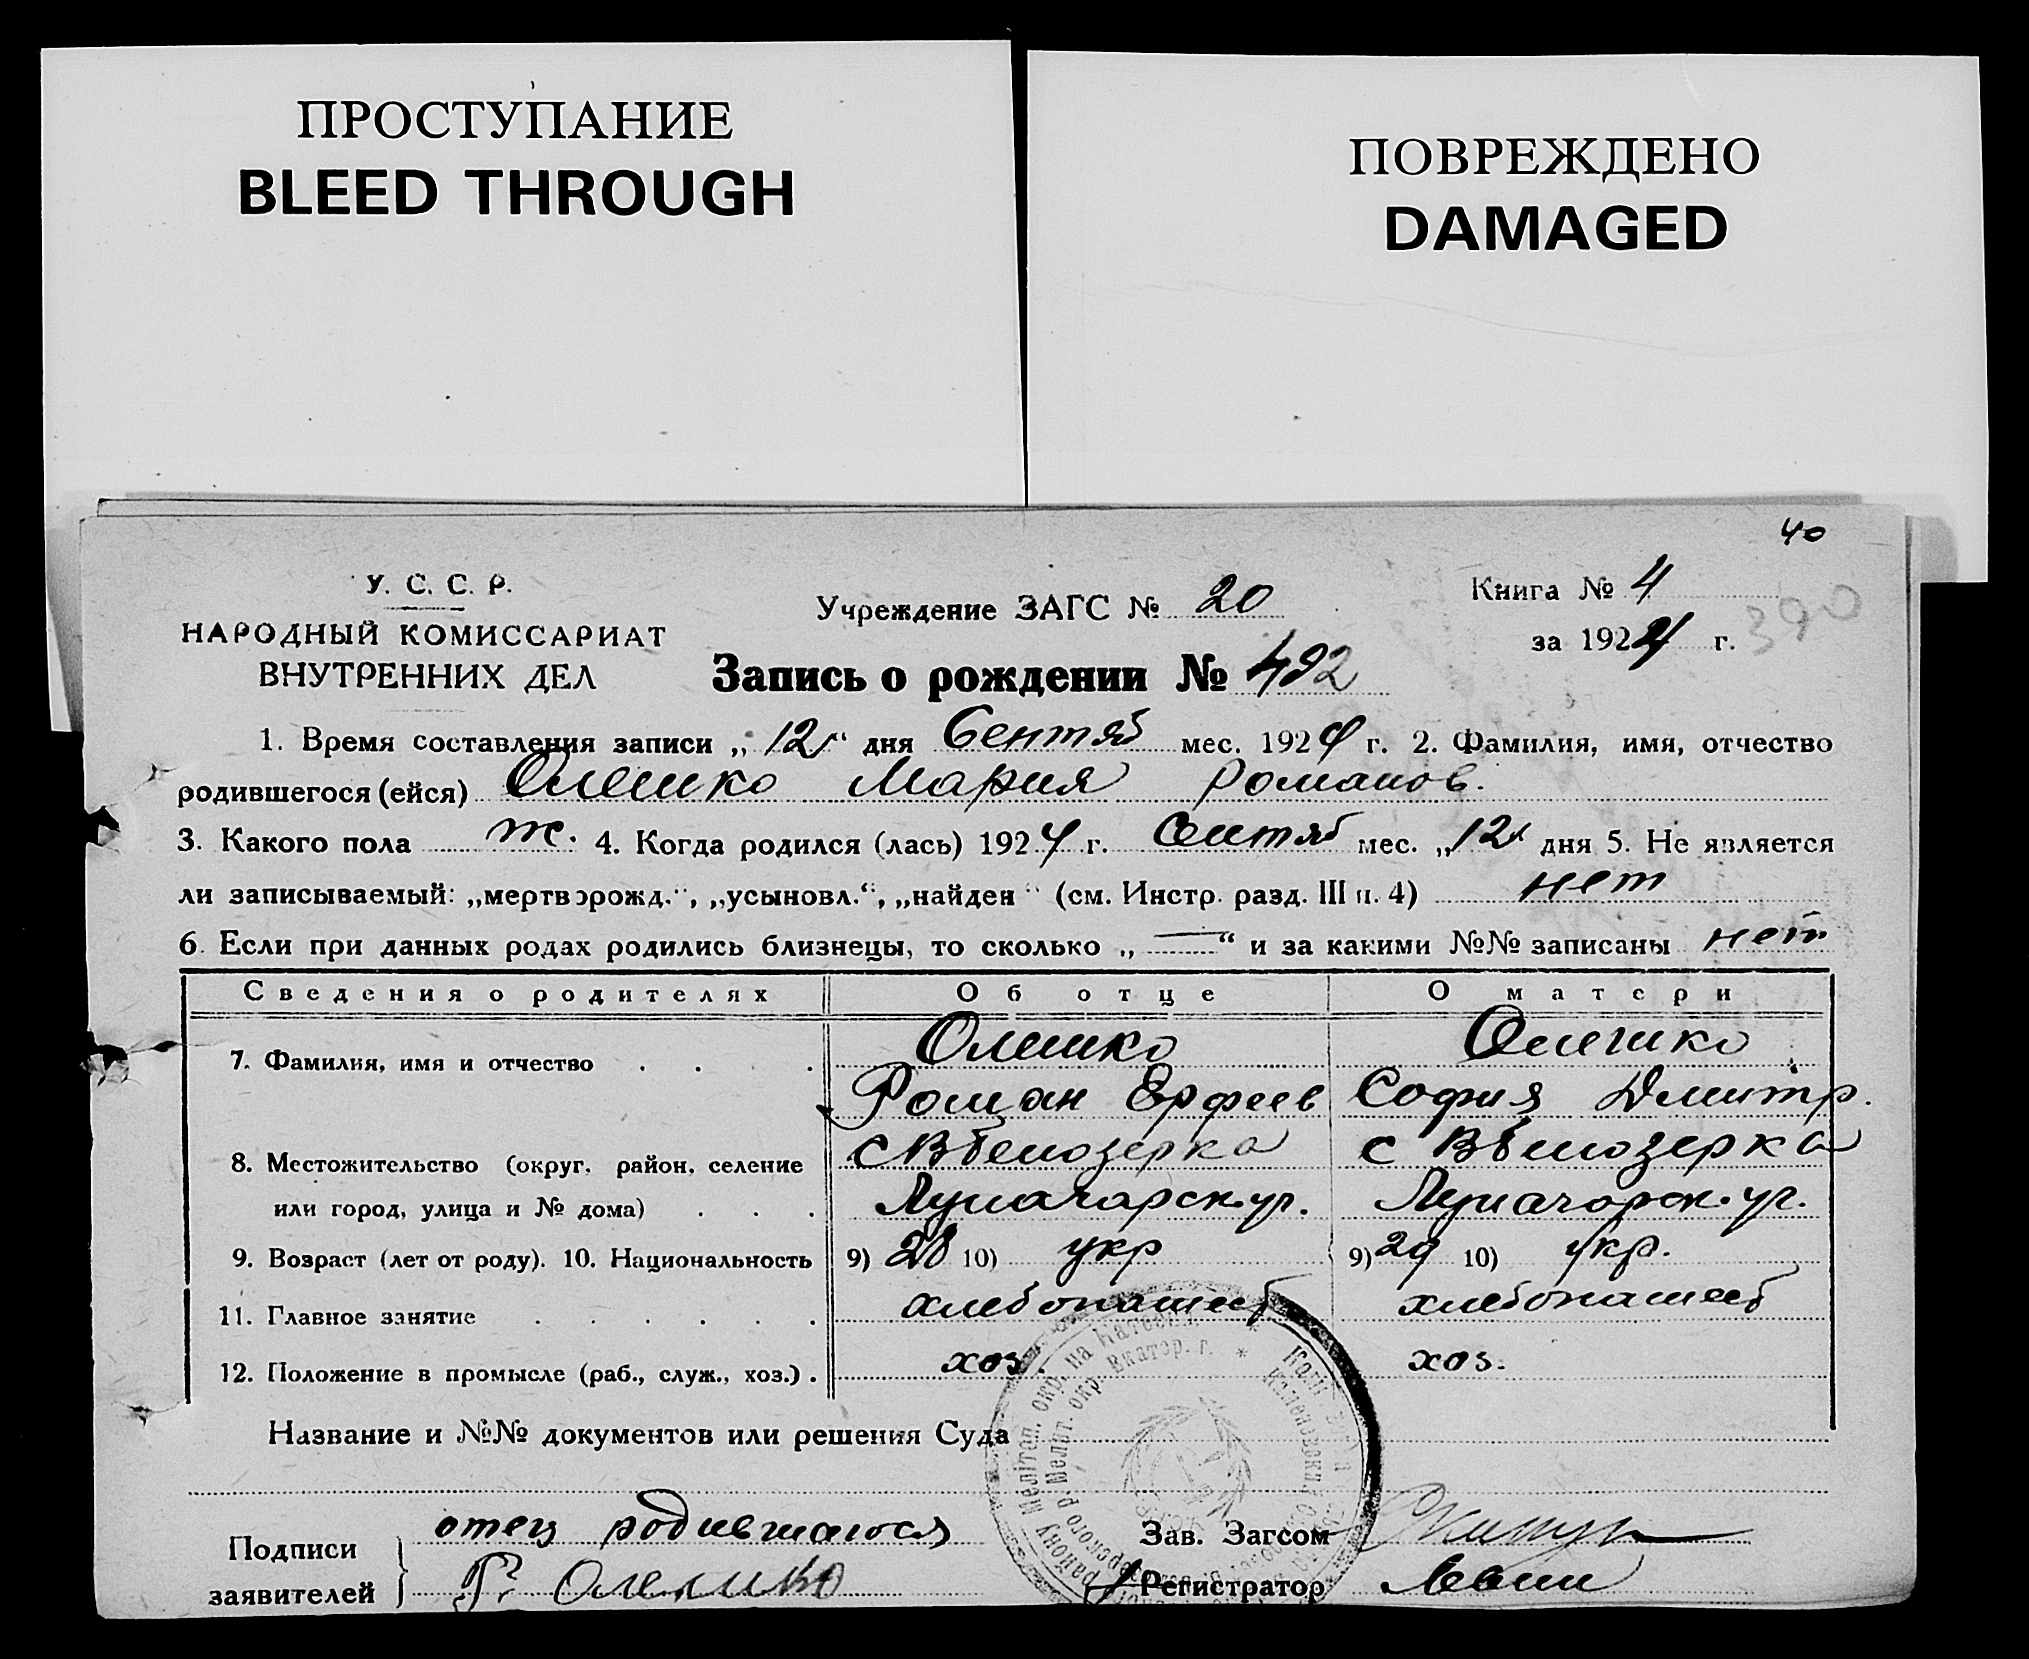 ПРОСТУПАНИЕ
BLEED THROUGH
ПОВРЕЖДЕНО
DAMAGED
40
У. С. С. Р.
НАРОДНЫЙ КОМИССАРИАТ
ВНУТРЕННИХ ДЕЛ
Учреждение ЗАГС № 20
Книга № 4
за 1924 г. 390
Запись о рождении № 492
1. Время составления записи „12“ дня Сентяб мес. 1924 г. 2. Фамилия, имя, отчество
родившегося (ейся) Олешко Мария Романов.
3. Какого пола ж. 4. Когда родился (лась) 1924 г. Сентяб мес. „12 дня 5. Не является
ли записываемый: „мертворожд.“, „усыновл.“, „найден“ (см. Инстр. разд. III п. 4) нет
6. Если при данных родах родились близнецы, то сколько „—“ и за какими №№ записаны нет
Сведения о родителях Об отце О матери
7. Фамилия, имя и отчество . . . . Олешко Олешко
Роман Ерфеев София Дмитр.
8. Местожительство (округ, район, селение с Вбелозерка с Вбелозерка
или город, улица и № дома) . . . Луначарск. ул. Луначарск. ул.
9. Возраст (лет от роду). 10. Национальность 9) 28 10) укр 9) 29 10) укр.
11. Главное занятие . . . . . . хлебопашеб хлебопашеб
12. Положение в промысле (раб., служ., хоз.) . хоз. хоз.
Название и №№ документов или решения Суда
Подписи
заявителей
отец родившагося
Р. Олешко
Зав. Загсом
Регистратор